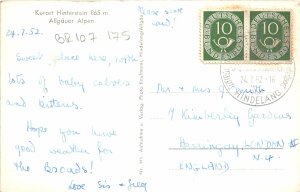 Kurort Hinterstein 865 m
Allgäuer Alpen
Please save
card!
24.7.52
B2107 175
Sweet place here, with
lots of baby calves
and kittens.
Hope you have
good weather for
the Broads!
Love Sis +
10
10
24.7.52-16
HINDELANG
Mr & Mrs
7 Kimberley Gardens
Harringay, LONDON
N.4.
ENGLAND